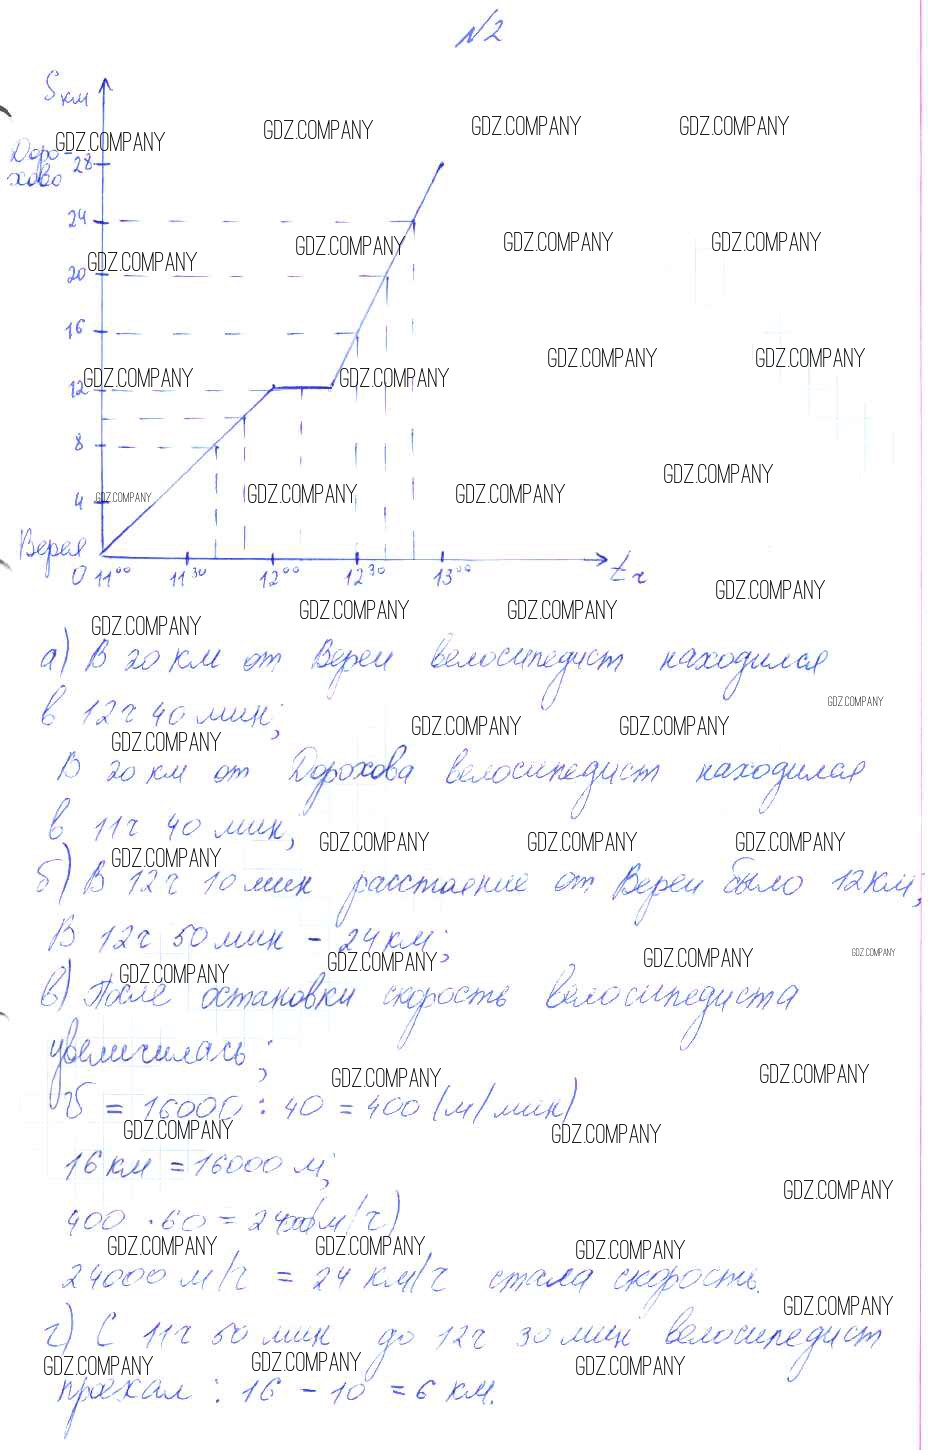 N2
S км
Доро-
хово
28
24
20
16
12
8
4
Верея
0 11⁰⁰ 11³⁰ 12⁰⁰ 12³⁰ 13⁰⁰ t ч
а) В 20 км от Вереи велосипедист находился
в 12ч 40 мин;
В 20 км от Дорохова велосипедист находился
в 11ч 40 мин;
б) В 12ч 10 мин расстояние от Вереи было 12 км;
В 12ч 50 мин – 24 км;
в) После остановки скорость велосипедиста
увеличилась;
V = 16000 : 40 = 400 (м/мин)
16 км = 16000 м;
400 · 60 = 24000 (м/ч)
24000 м/ч = 24 км/ч стала скорость.
г) С 11ч 50 мин до 12ч 30 мин велосипедист
проехал: 16 – 10 = 6 км.
GDZ.COMPANY